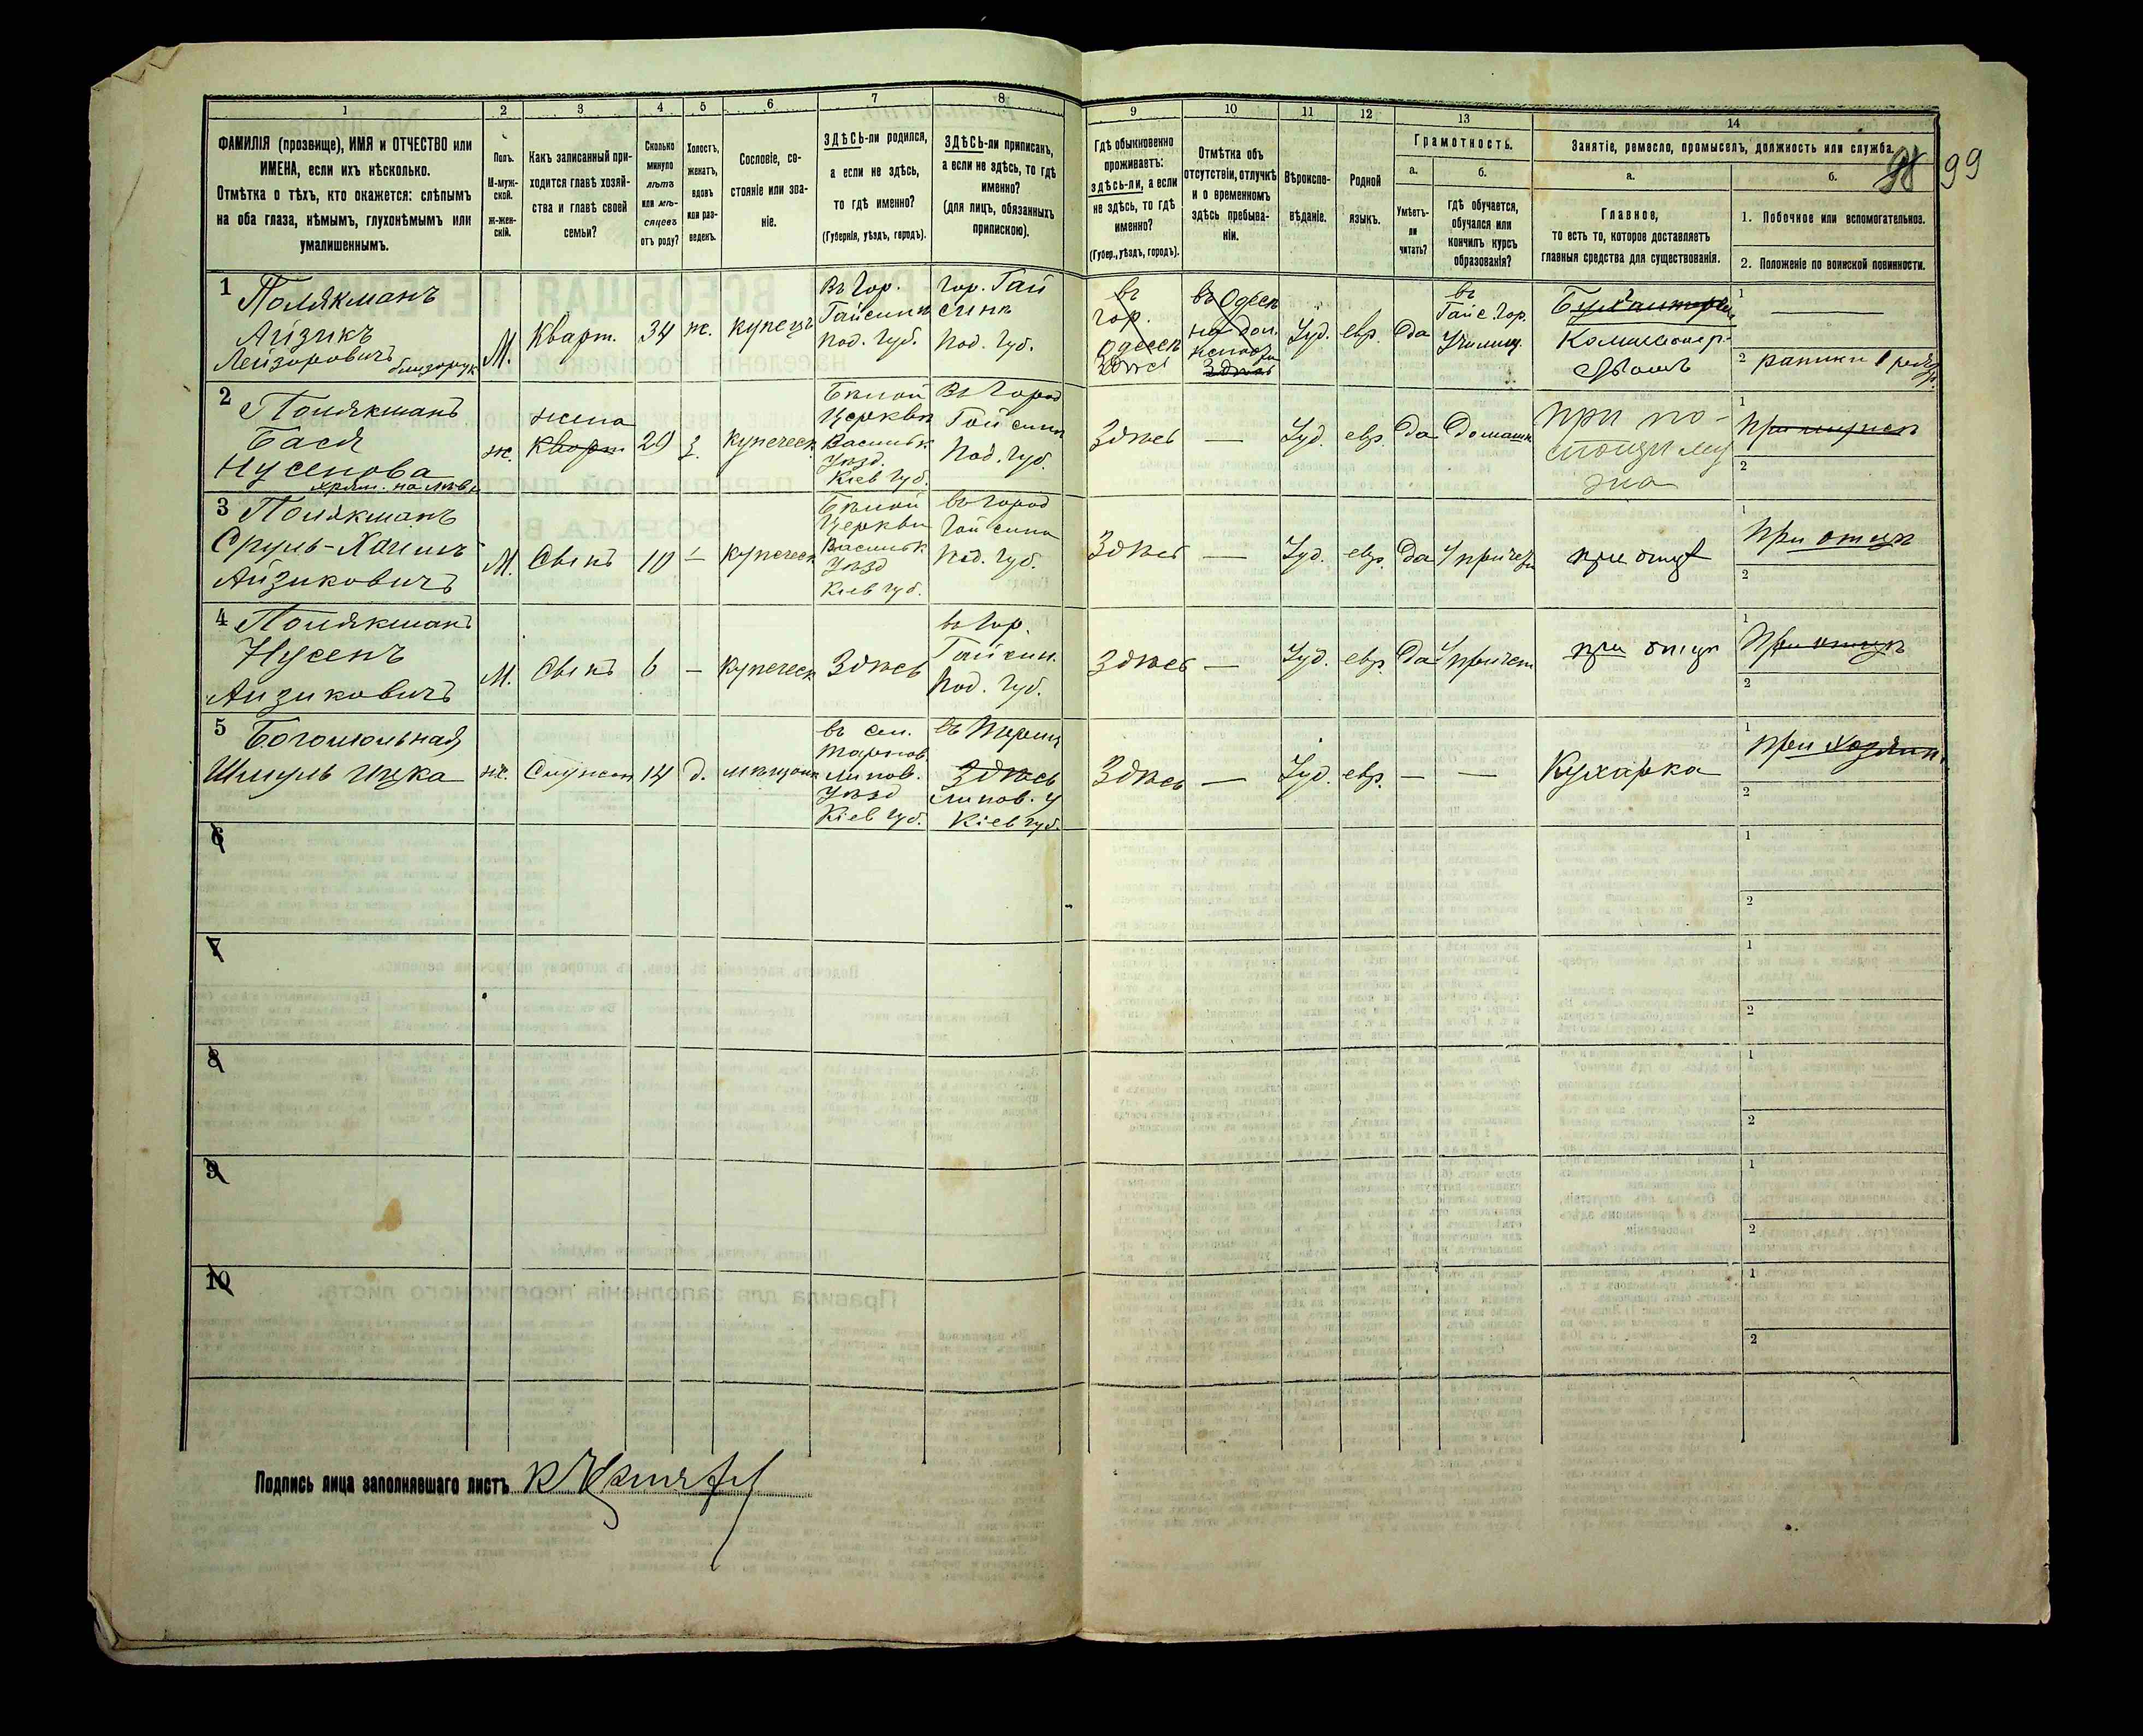 1
2
3
4
5
6
7
8
ФАМИЛІЯ (прозвище), ИМЯ и ОТЧЕСТВО или
ИМЕНА, если ихъ нѣсколько.
Отмѣтка о тѣхъ, кто окажется: слѣпымъ
на оба глаза, нѣмымъ, глухонѣмымъ или
умалишеннымъ.
Полъ.
М-муж-
ской.
ж-жен-
скій.
Какъ записанный при-
ходится главѣ хозяй-
ства и главѣ своей
семьи?
Сколько
минуло
лѣтъ
или мѣ-
сяцевъ
отъ роду?
Холостъ,
женатъ,
вдовъ
или раз-
веденъ.
Сословіе, со-
стояніе или зва-
ніе.
ЗДѢСЬ-ли родился,
а если не здѣсь,
то гдѣ именно?
(Губернія, уѣздъ, городъ).
ЗДѢСЬ-ли приписанъ,
а если не здѣсь, то гдѣ
именно?
(для лицъ, обязанныхъ
припискою).
9
10
11
12
13
14
Гдѣ обыкновенно
проживаетъ:
здѣсь-ли, а если
не здѣсь, то гдѣ
именно?
(Губер., уѣздъ, городъ).
Отмѣтка объ
отсутствіи, отлучкѣ
и о временномъ
здѣсь пребыва-
ніи.
Вѣроиспо-
вѣданіе.
Родной
языкъ.
Грамотность.
а.
Умѣетъ-
ли
читать?
б.
гдѣ обучается,
обучался или
кончилъ курсъ
образованія?
Занятіе, ремесло, промыселъ, должность или служба.
а.
Главное,
то есть то, которое доставляетъ
главныя средства для существованія.
б.
1. Побочное или вспомогательное.
2. Положеніе по воинской повинности.
98 99
1 Полякманъ
Айзикъ
Лейзоровичъ
близорук
М.
Кварт.
34
ж.
купецъ
Въ Гор.
Гайсинѣ
Под. Губ.
Гор. Гай
синѣ
Под. Губ.
въ
гор.
Одессѣ
Здѣсь
въ Одесс
Здѣсь
Іуд.
евр.
да
въ
Гайс. Гор.
Училищ.
Бухгалтер
Комиссіонер
1
2
2 Полякманъ
Бася
Нусенова
ж.
жена
Кварт
29
з.
купеческ
Бѣлой
Церкви
Васильк
Уѣзд.
Кіев Губ.
Въ Город
Гайсинѣ
Под. Губ.
Здѣсь
—
Іуд.
евр.
да
Домашн
при по-
1
2
3 Полякманъ
Сруль-Хаимъ
Айзиковичъ
М.
Сынъ
10
—
купеческ
Бѣлой
Церкви
Васильк
Уѣзд
Кіев губ.
въ город
Гайсина
Под. Губ.
Здѣсь
—
Іуд.
евр.
да
при отцѣ
1 при отцѣ
2
4 Полякманъ
Нусенъ
Айзиковичъ
М.
Сынъ
6
—
купеческ
Здѣсь
въ Гор.
Гайсин.
Под. Губ.
Здѣсь
—
Іуд.
евр.
да
при отцѣ
1 при отцѣ
2
5 Богомольная
Шмуль Ицка
ж.
Служан
14
д.
мѣщанк
въ сел.
Липов.
Уѣзд
Кіев Губ.
Здѣсь
Липов. У
Кіев губ.
Здѣсь
—
Іуд.
евр.
—
—
Кухарка
1 при хозяин
2
6
1
2
7
1
2
8
1
2
9
1
2
10
1
2
Подпись лица заполнявшаго листъ